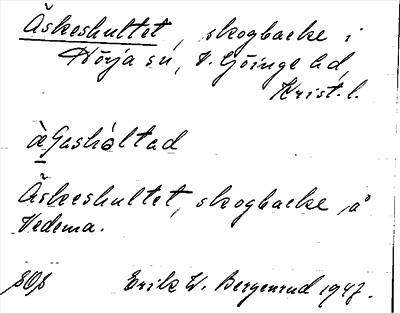 Äskeshultet, skogbacke i
Hörja sn, V. Göinge hd,
Krist. l.
Äskeshultet, skogbacke på
Vedema.
SOS Erik W. Bergenrud 1947.